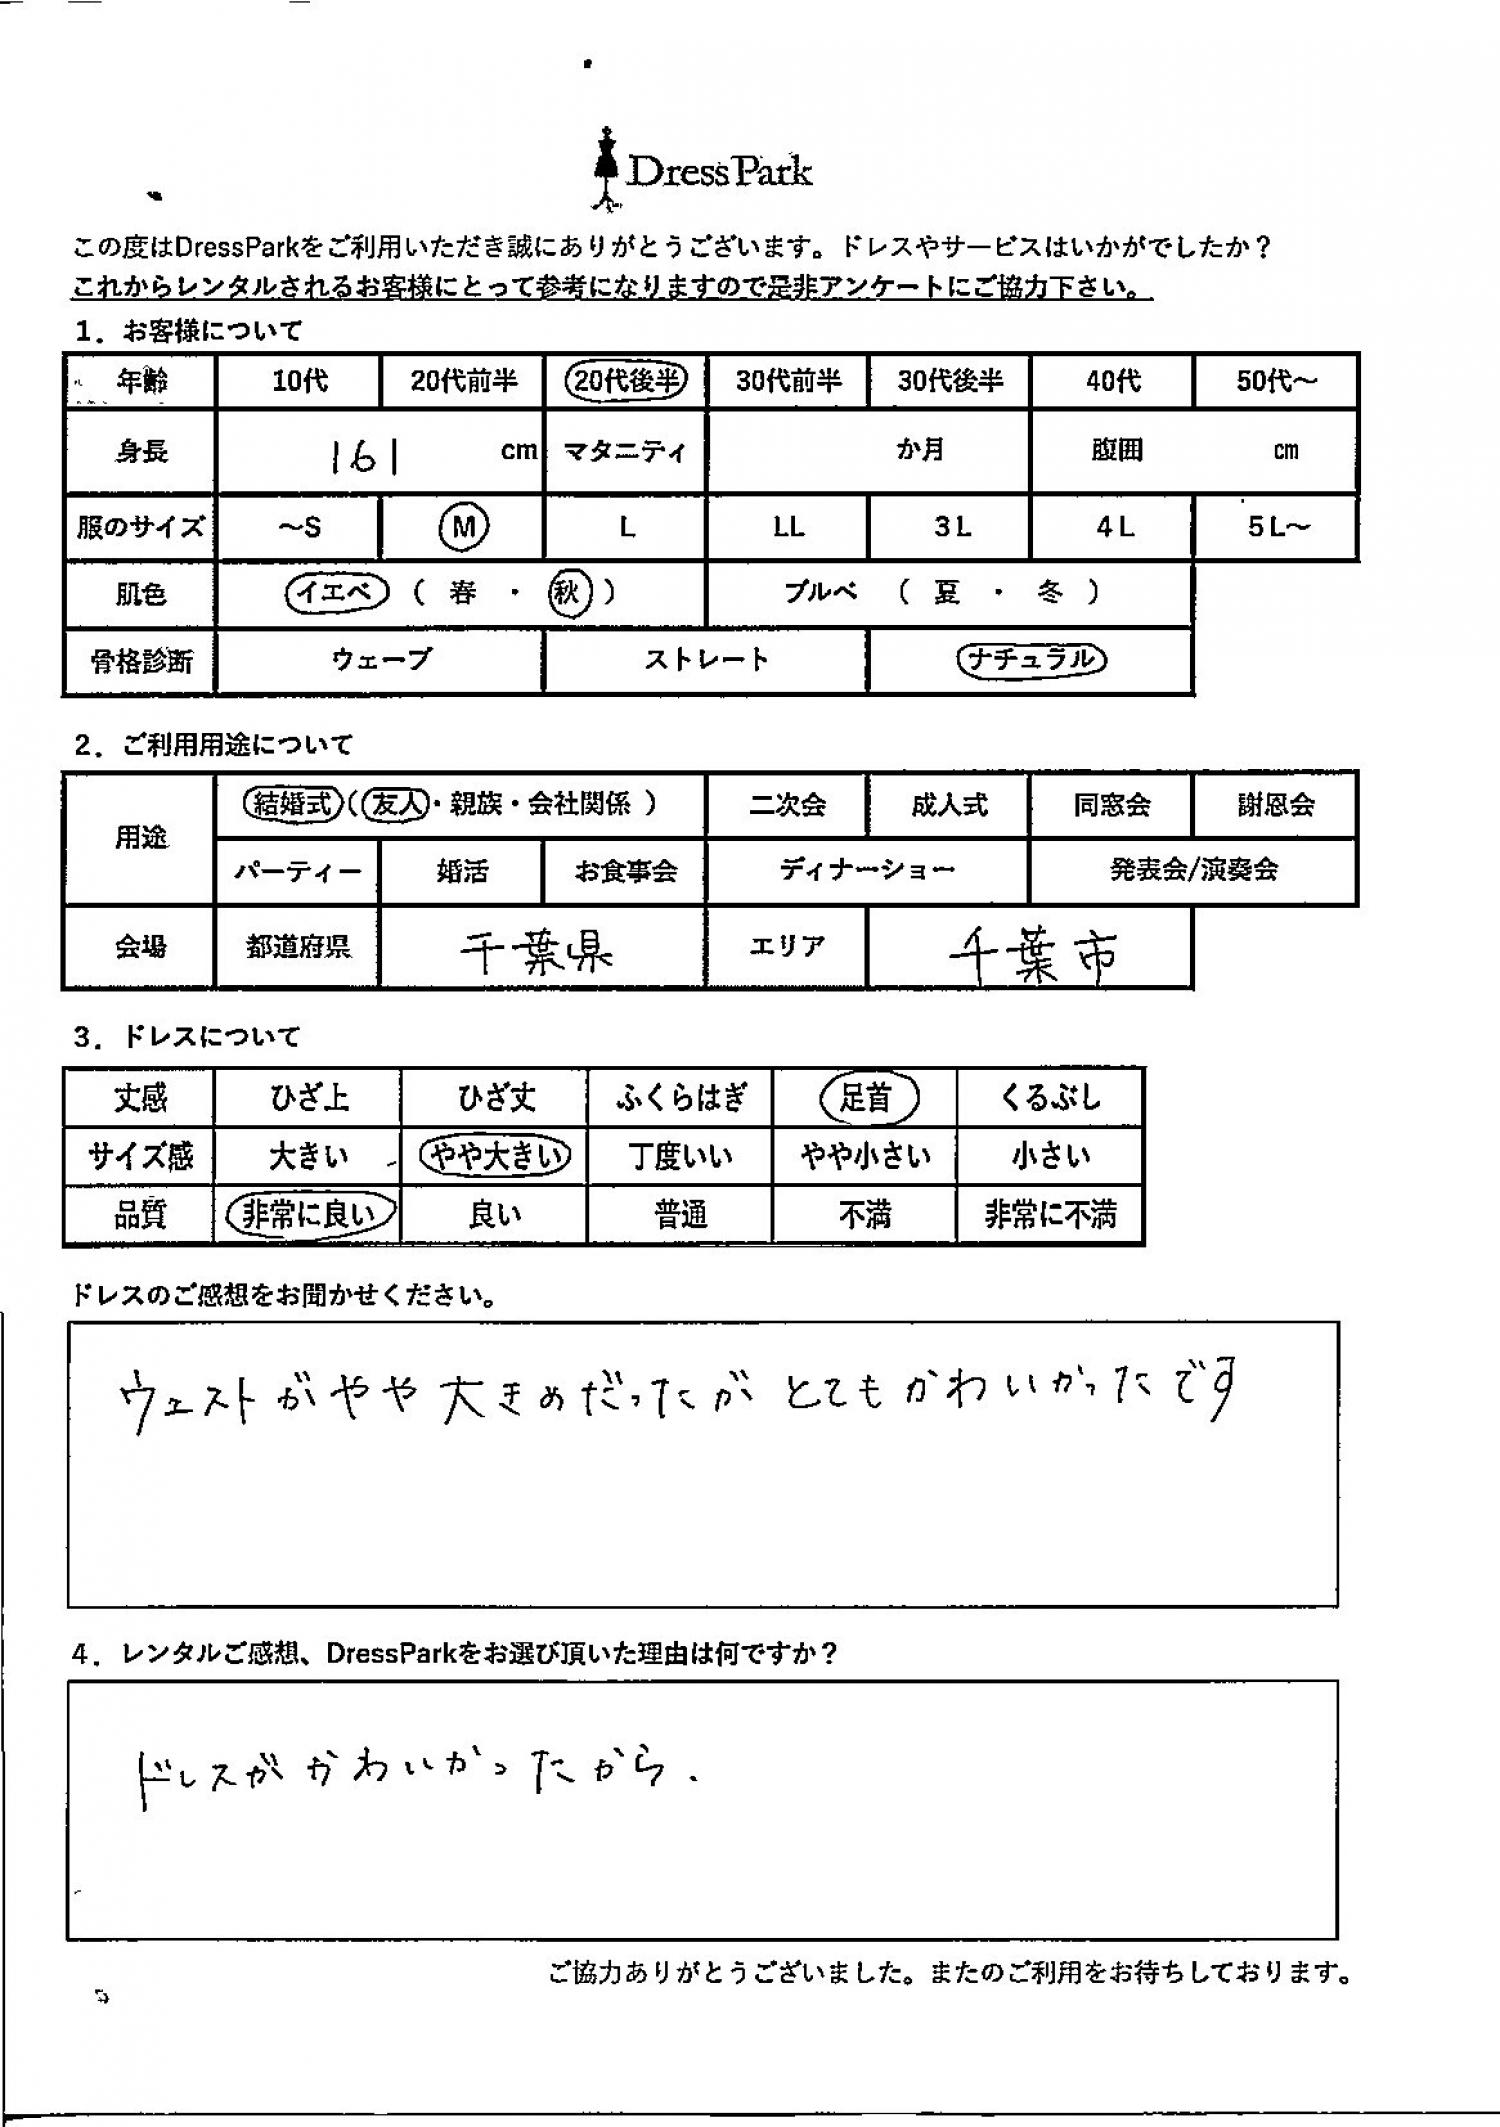 DressPark
この度はDressParkをご利用いただき誠にありがとうございます。ドレスやサービスはいかがでしたか？
これからレンタルされるお客様にとって参考になりますので是非アンケートにご協力下さい。
1．お客様について
年齢 10代 20代前半 20代後半 30代前半 30代後半 40代 50代～
身長 161 cm マタニティ か月 腹囲 cm
服のサイズ ～S M L LL 3L 4L 5L～
肌色 イエベ（ 春 ・ 秋 ） ブルベ （ 夏 ・ 冬 ）
骨格診断 ウェーブ ストレート ナチュラル
2．ご利用用途について
用途 結婚式（友人・親族・会社関係 ） 二次会 成人式 同窓会 謝恩会
パーティー 婚活 お食事会 ディナーショー 発表会/演奏会
会場 都道府県 千葉県 エリア 千葉市
3．ドレスについて
丈感 ひざ上 ひざ丈 ふくらはぎ 足首 くるぶし
サイズ感 大きい やや大きい 丁度いい やや小さい 小さい
品質 非常に良い 良い 普通 不満 非常に不満
ドレスのご感想をお聞かせください。
ウェストがやや大きめだったがとてもかわいかったです
4．レンタルご感想、DressParkをお選び頂いた理由は何ですか？
ドレスがかわいかったから.
ご協力ありがとうございました。またのご利用をお待ちしております。